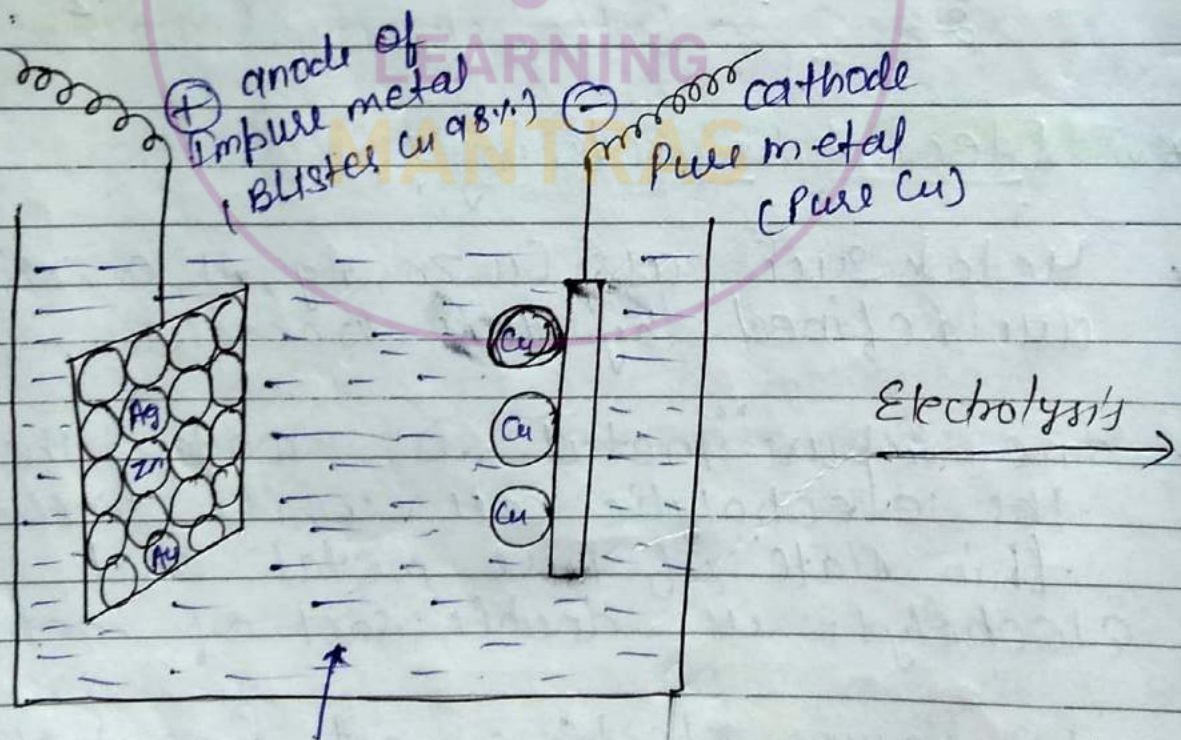 LEARNING
MANTRAS
⊕ anode of
Impure metal
(Blister Cu 98%)
⊖ cathode
Pure metal
(Pure Cu)
Ag
Zn
Au
Cu
Cu
Cu
Electrolysis